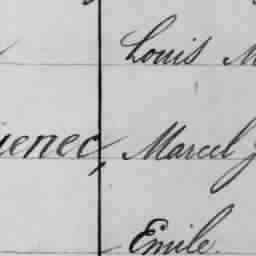 Louis M
uenec, Marcel J
Emile.